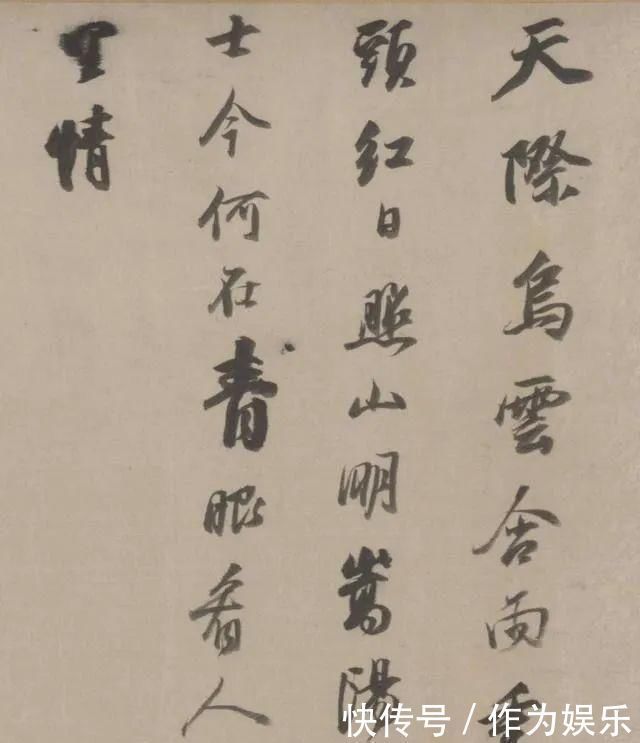 天際烏雲含雨重
頭紅日照山明嵩陽
士今何在青眼看人
里情
快传号 / 作为娱乐